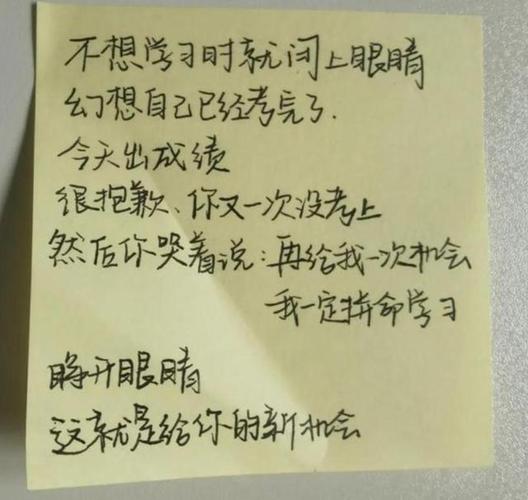 不想学习时就闭上眼睛
幻想自己已经考完了.
今天出成绩
很抱歉、你又一次没考上
然后你哭着说:再给我一次机会
我一定拼命学习
睁开眼睛
这就是给你的新机会